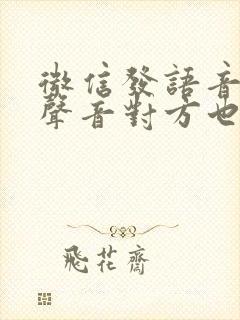 微信發語音
聲音對方也
飛花齋